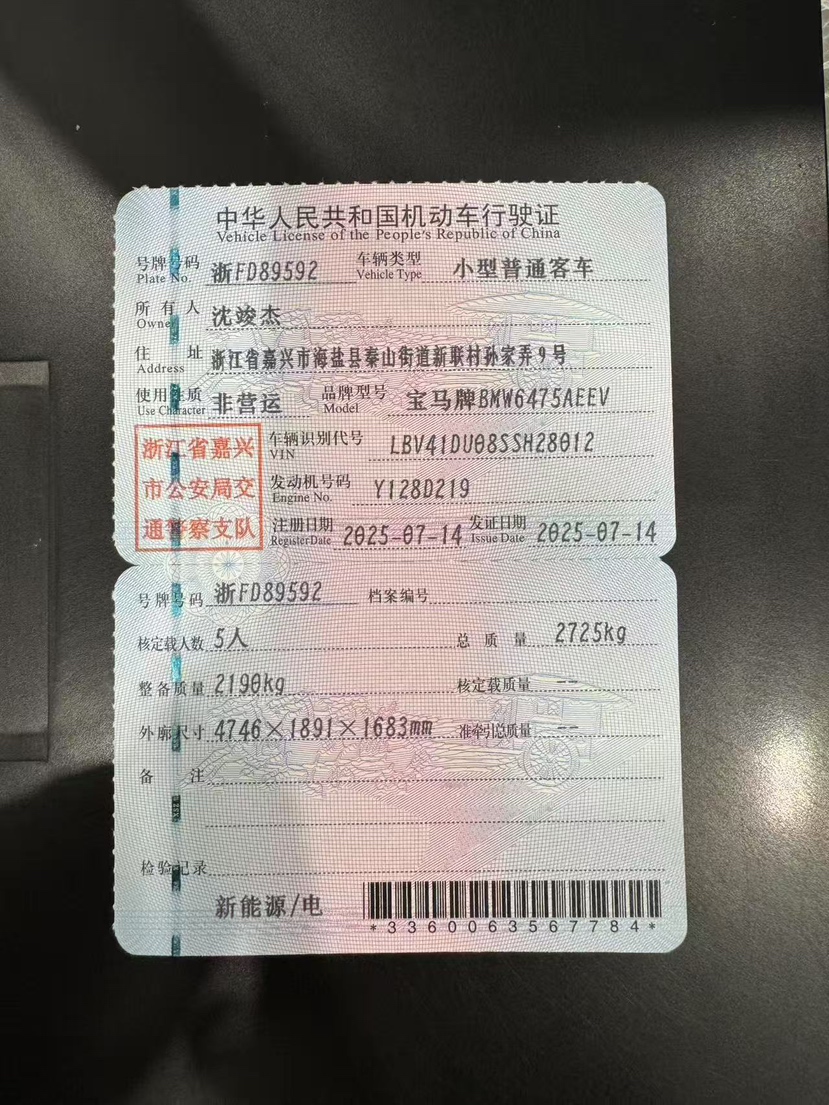 中华人民共和国机动车行驶证
Vehicle License of the People's Republic of China
号牌号码 浙FD89592 车辆类型 小型普通客车
Plate No. Vehicle Type
所有人 沈竣杰
Owner
住址 浙江省嘉兴市海盐县秦山街道新联村孙家弄9号
Address
使用性质 非营运 品牌型号 宝马牌BMW6475AEEV
Use Character Model
浙江省嘉兴
市公安局交
通警察支队
车辆识别代号 LBV41DU08SSH28012
VIN
发动机号码 Y128D219
Engine No.
注册日期 2025-07-14 发证日期 2025-07-14
Register Date Issue Date
号牌号码 浙FD89592 档案编号
核定载人数 5人 总质量 2725kg
整备质量 2190kg 核定载质量 --
外廓尺寸 4746×1891×1683mm 准牵引总质量 --
备注
检验记录
新能源/电
*3360063567784*